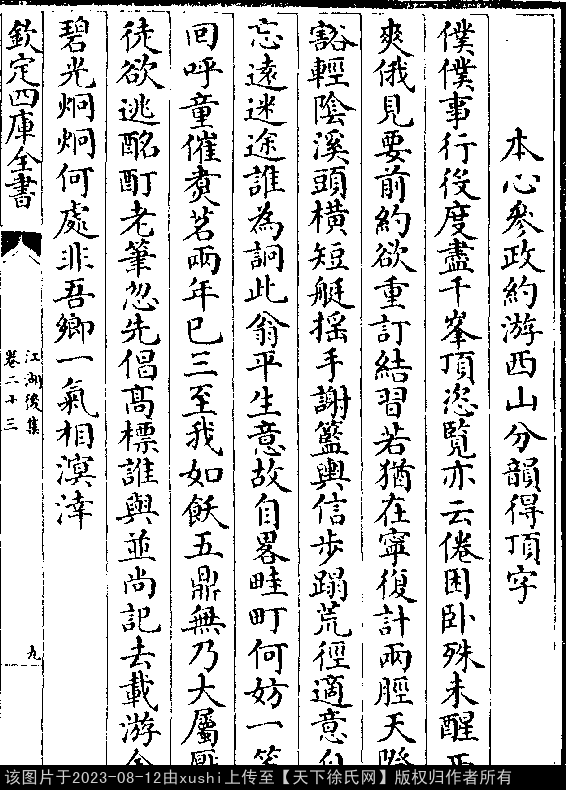 本心參政約游西山分韻得頂字
僕僕事行役度盡千峯頂恣覧亦云倦困卧殊未醒
爽俄見要前約欲重訂結習若猶在寧復計兩脛天
豁輕陰溪頭橫短艇揺手謝籃輿信步蹋荒徑適意
忘遠迷途誰為詗此翁平生意故自畧畦町何妨一
回呼童催煑茗兩年已三至我如飫五鼎無乃大屬
徒欲逃酩酊老筆忽先倡髙標誰與並尚記去載游
碧光炯炯何處非吾鄉一氣相溟涬
欽定四庫全書
江湖後集
卷二十三
九
该图片于2023-08-12由xushi上传至【天下徐氏网】版权归作者所有